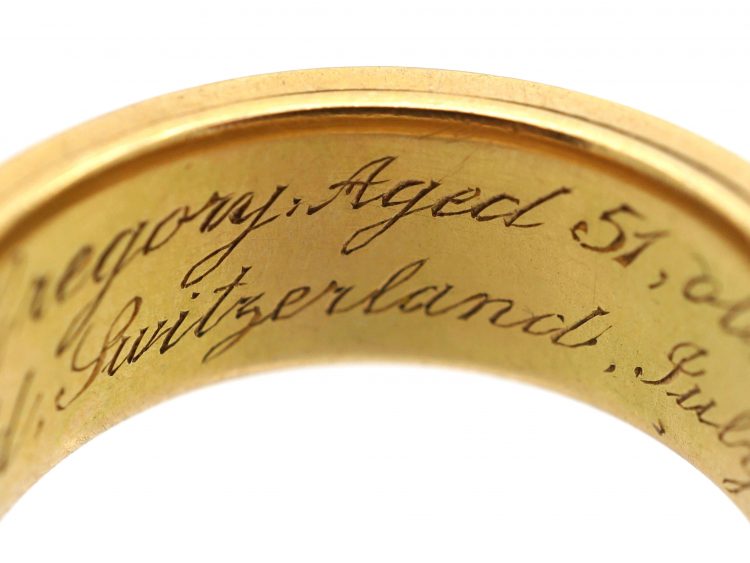 Gregory, Aged 51,
Switzerland, July